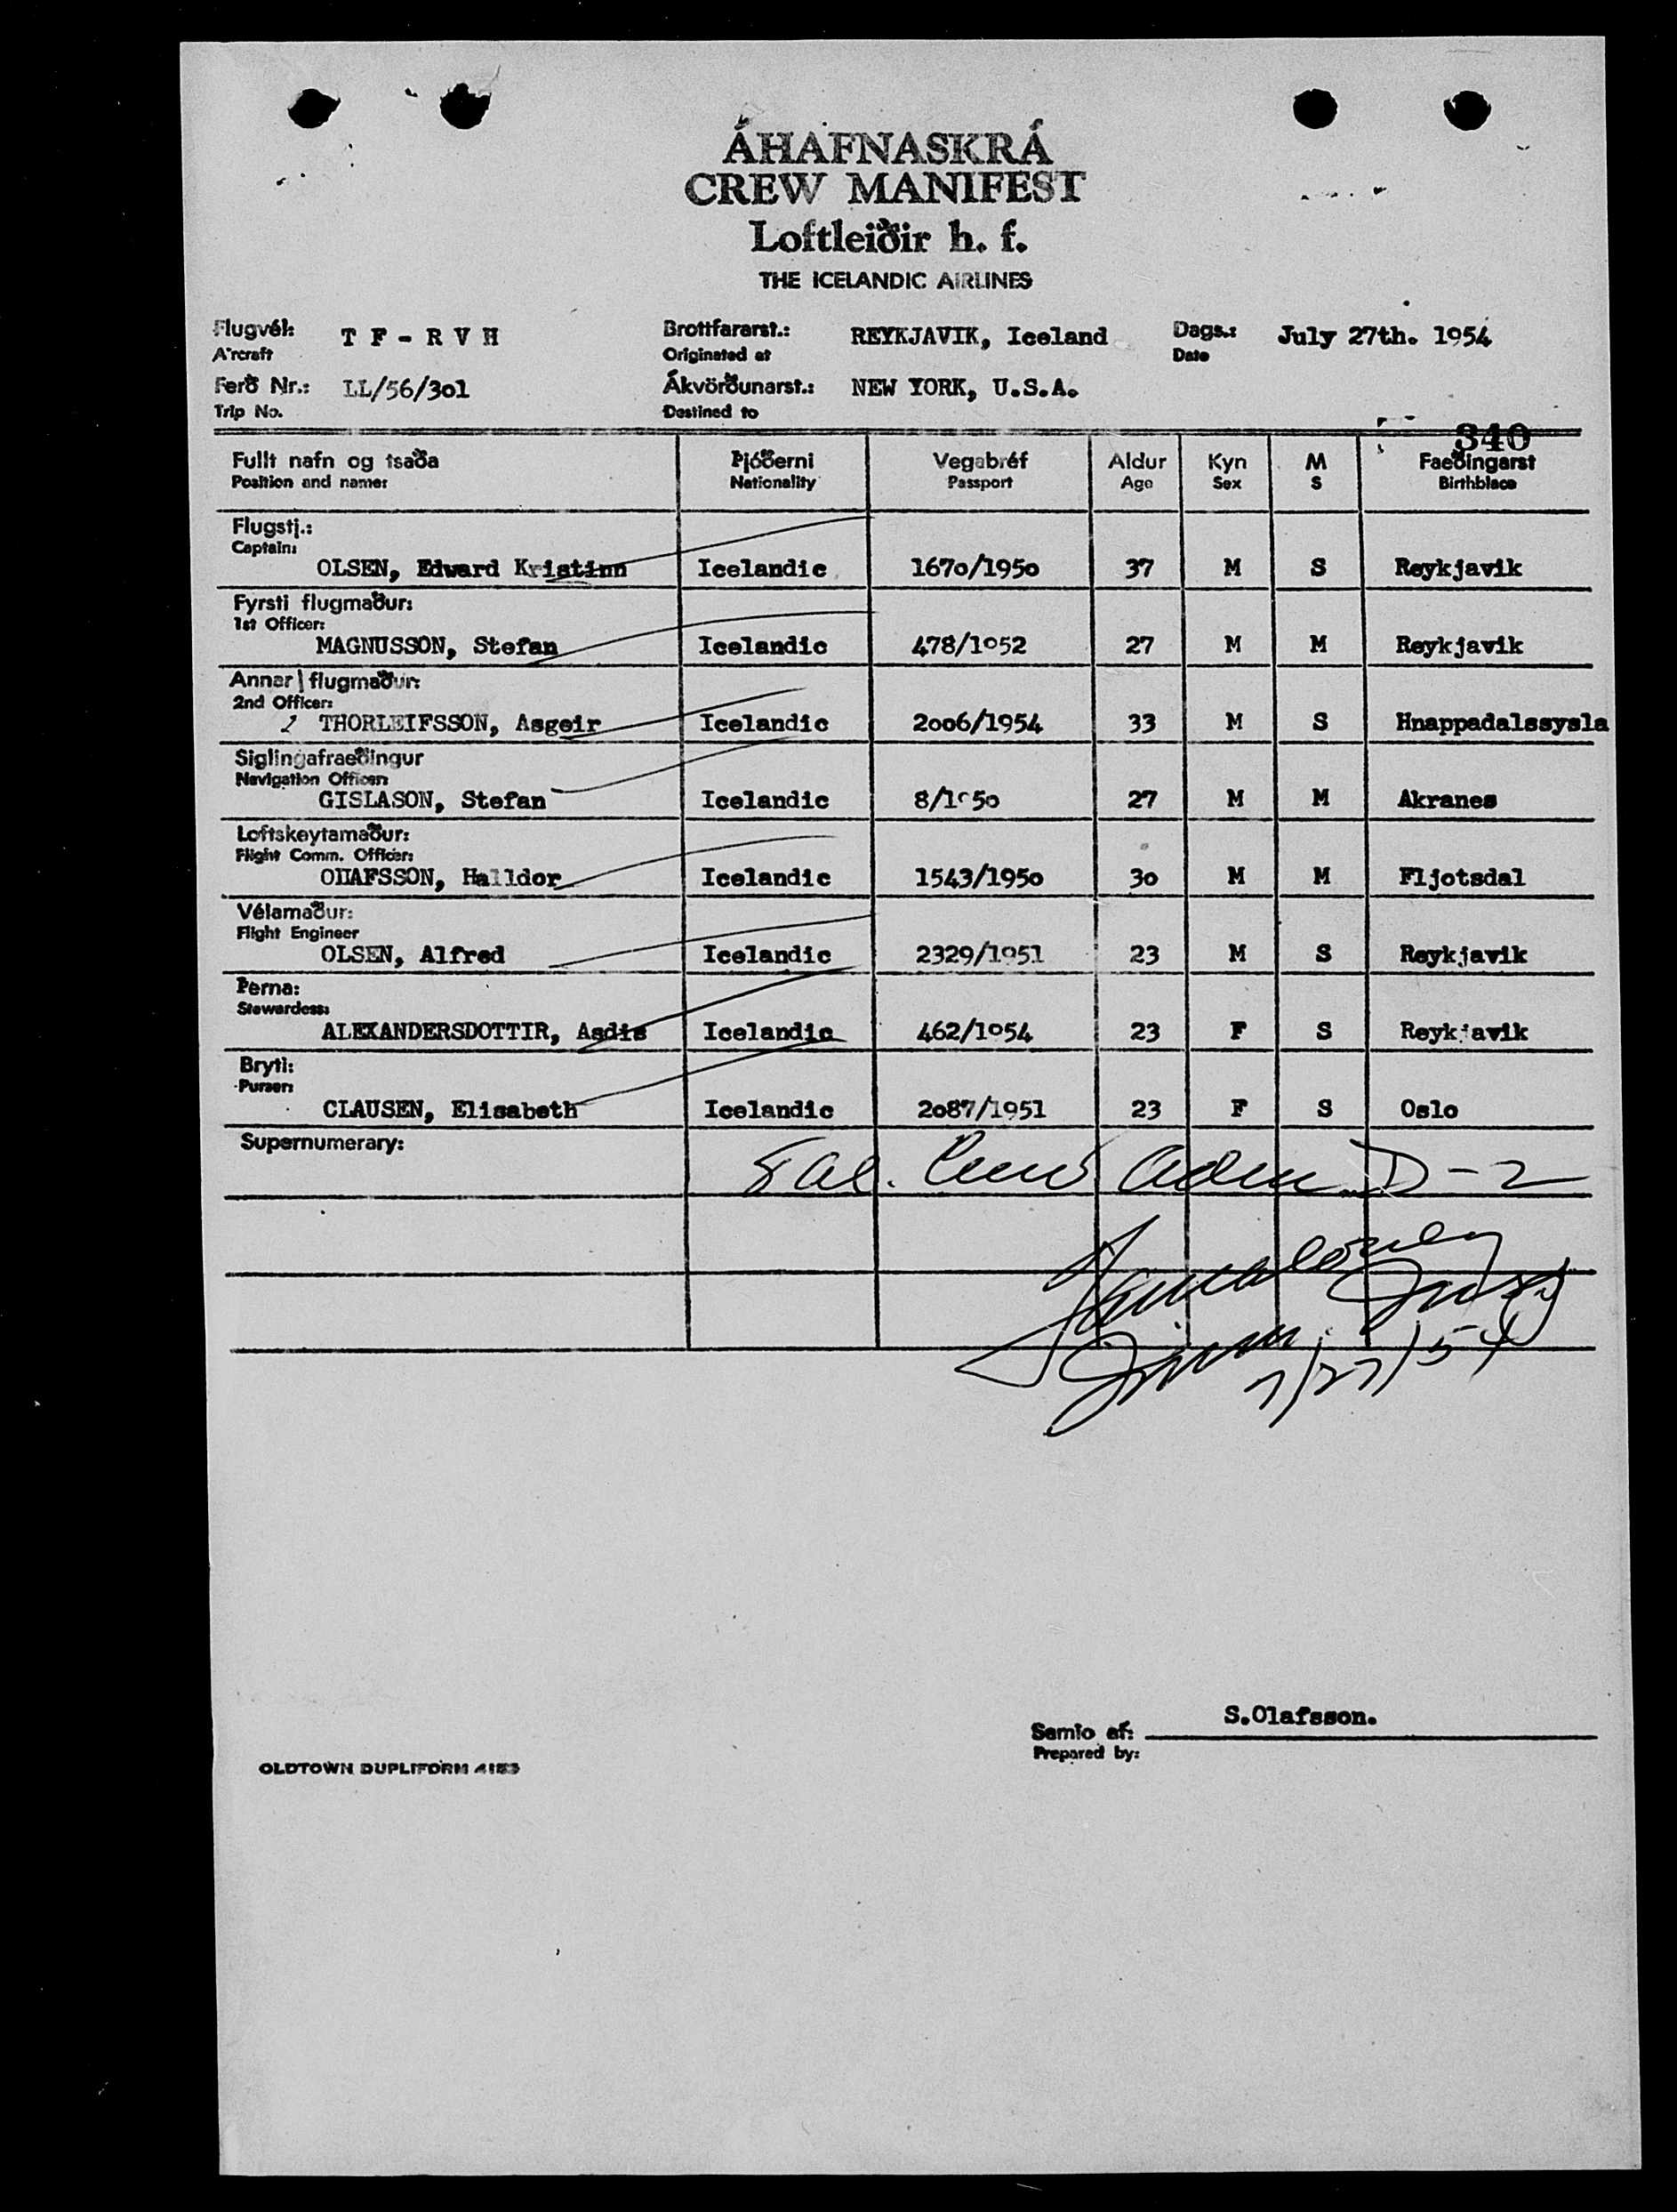 ÁHAFNASKRÁ
CREW MANIFEST
Loftleiðir h. f.
THE ICELANDIC AIRLINES
Flugvél: T F - R V H Brottfararst.: REYKJAVIK, Iceland Dags.: July 27th. 1954
Aircraft Originated at Date
Ferð Nr.: LL/56/3o1 Ákvörðunarst.: NEW YORK, U.S.A.
Trip No. Destined to
340
Fullt nafn og tsaða Þjóðerni Vegabréf Aldur Kyn M Faeðingarst
Position and name: Nationality Passport Age Sex S Birthblace
Flugstj.:
Captain:
OLSEN, Edward Kristinn Icelandic 167o/195o 37 M S Reykjavik
Fyrsti flugmaður:
1st Officer:
MAGNUSSON, Stefan Icelandic 478/1952 27 M M Reykjavik
Annar flugmaður:
2nd Officer:
THORLEIFSSON, Asgeir Icelandic 2oo6/1954 33 M S Hnappadalssysla
Siglingafraeðingur
Navigation Officer:
GISLASON, Stefan Icelandic 8/195o 27 M M Akranes
Loftskeytamaður:
Flight Comm. Officer:
OLAFSSON, Halldor Icelandic 1543/195o 3o M M Fljotsdal
Vélamaður:
Flight Engineer
OLSEN, Alfred Icelandic 2329/1951 23 M S Reykjavik
Þerna:
Stewardess:
ALEXANDERSDOTTIR, Asdis Icelandic 462/1954 23 F S Reykjavik
Bryti:
Purser:
CLAUSEN, Elisabeth Icelandic 2o87/1951 23 F S Oslo
Supernumerary:
8 al. Crew Adm D-2
7/27/54
S.Olafsson.
Samið af:
Prepared by:
OLDTOWN DUPLIFORM 4183